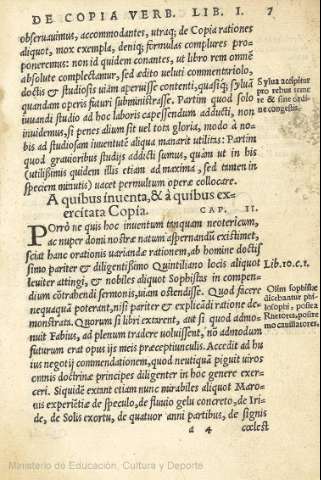 DE COPIA VERB. LIB. I. 7
obseruauimus, accommodantes, utraq; de Copia rationes
aliquot, mox exempla, deniq; formulas complures pro-
poneremus: non id quidem conantes, ut libro rem omnē
absolute complectamur, sed edito ueluti commentariolo,
doctis & studiosis uiam aperuisse contenti, quasiq; syluā
quandam operis futuri subministrasse. Partim quod solo
iuuandi studio ad hoc laboris capessendum adducti, non
inuidemus, si penes alium sit uel tota gloria, modo à no-
bis ad studiosam iuuentutē aliqua manarit utilitas: Partim
quod grauioribus studijs addicti sumus, quàm ut in bis
(utilissimis quidem illis etiam ad maxima, sed tamen in
speciem minutis) uacet permultum operæ collocare.
Sylua accipitur
pro rebus teme
re & sine ordi-
ne congestis.
A quibus inuenta, & à quibus ex-
ercitata Copia. CAP. II.
PORRò ne quis hoc inuentum tanquam neotericum,
ac nuper domi nostræ natum aspernandū existimet,
sciat hanc orationis uariandæ rationem, ab homine doctis
simo pariter & diligentissimo Quintiliano locis aliquot
leuiter attingi, & nobiles aliquot Sophistas in compen-
dium cōtrahendi sermonis, uiam ostendisse. Quod facere
nequaquā poterant, nisi pariter & explicādi ratione de-
monstrata. Quorum si libri extarent, aut si quod admo-
nuit Fabius, ad plenum tradere uoluissent, nō admodum
futurum erat opus ijs meis præceptiunculis. Accedit ad hu
ius negotij commendationem, quod neutiquā piguit uiros
omnis doctrinæ principes diligenter in hoc genere exer-
ceri. Siquidē extant etiam nunc mirabiles aliquot Maro-
nis experiētiæ de speculo, de fluuio gelu concreto, de Iri-
de, de Solis exortu, de quatuor anni partibus, de signis
Lib. 10. c. 1.
Olim sophistæ
dicebantur phi-
losophi, postea
Rhetores, postre
mo cauillatores.
a 4 cœlest
Ministerio de Educación, Cultura y Deporte